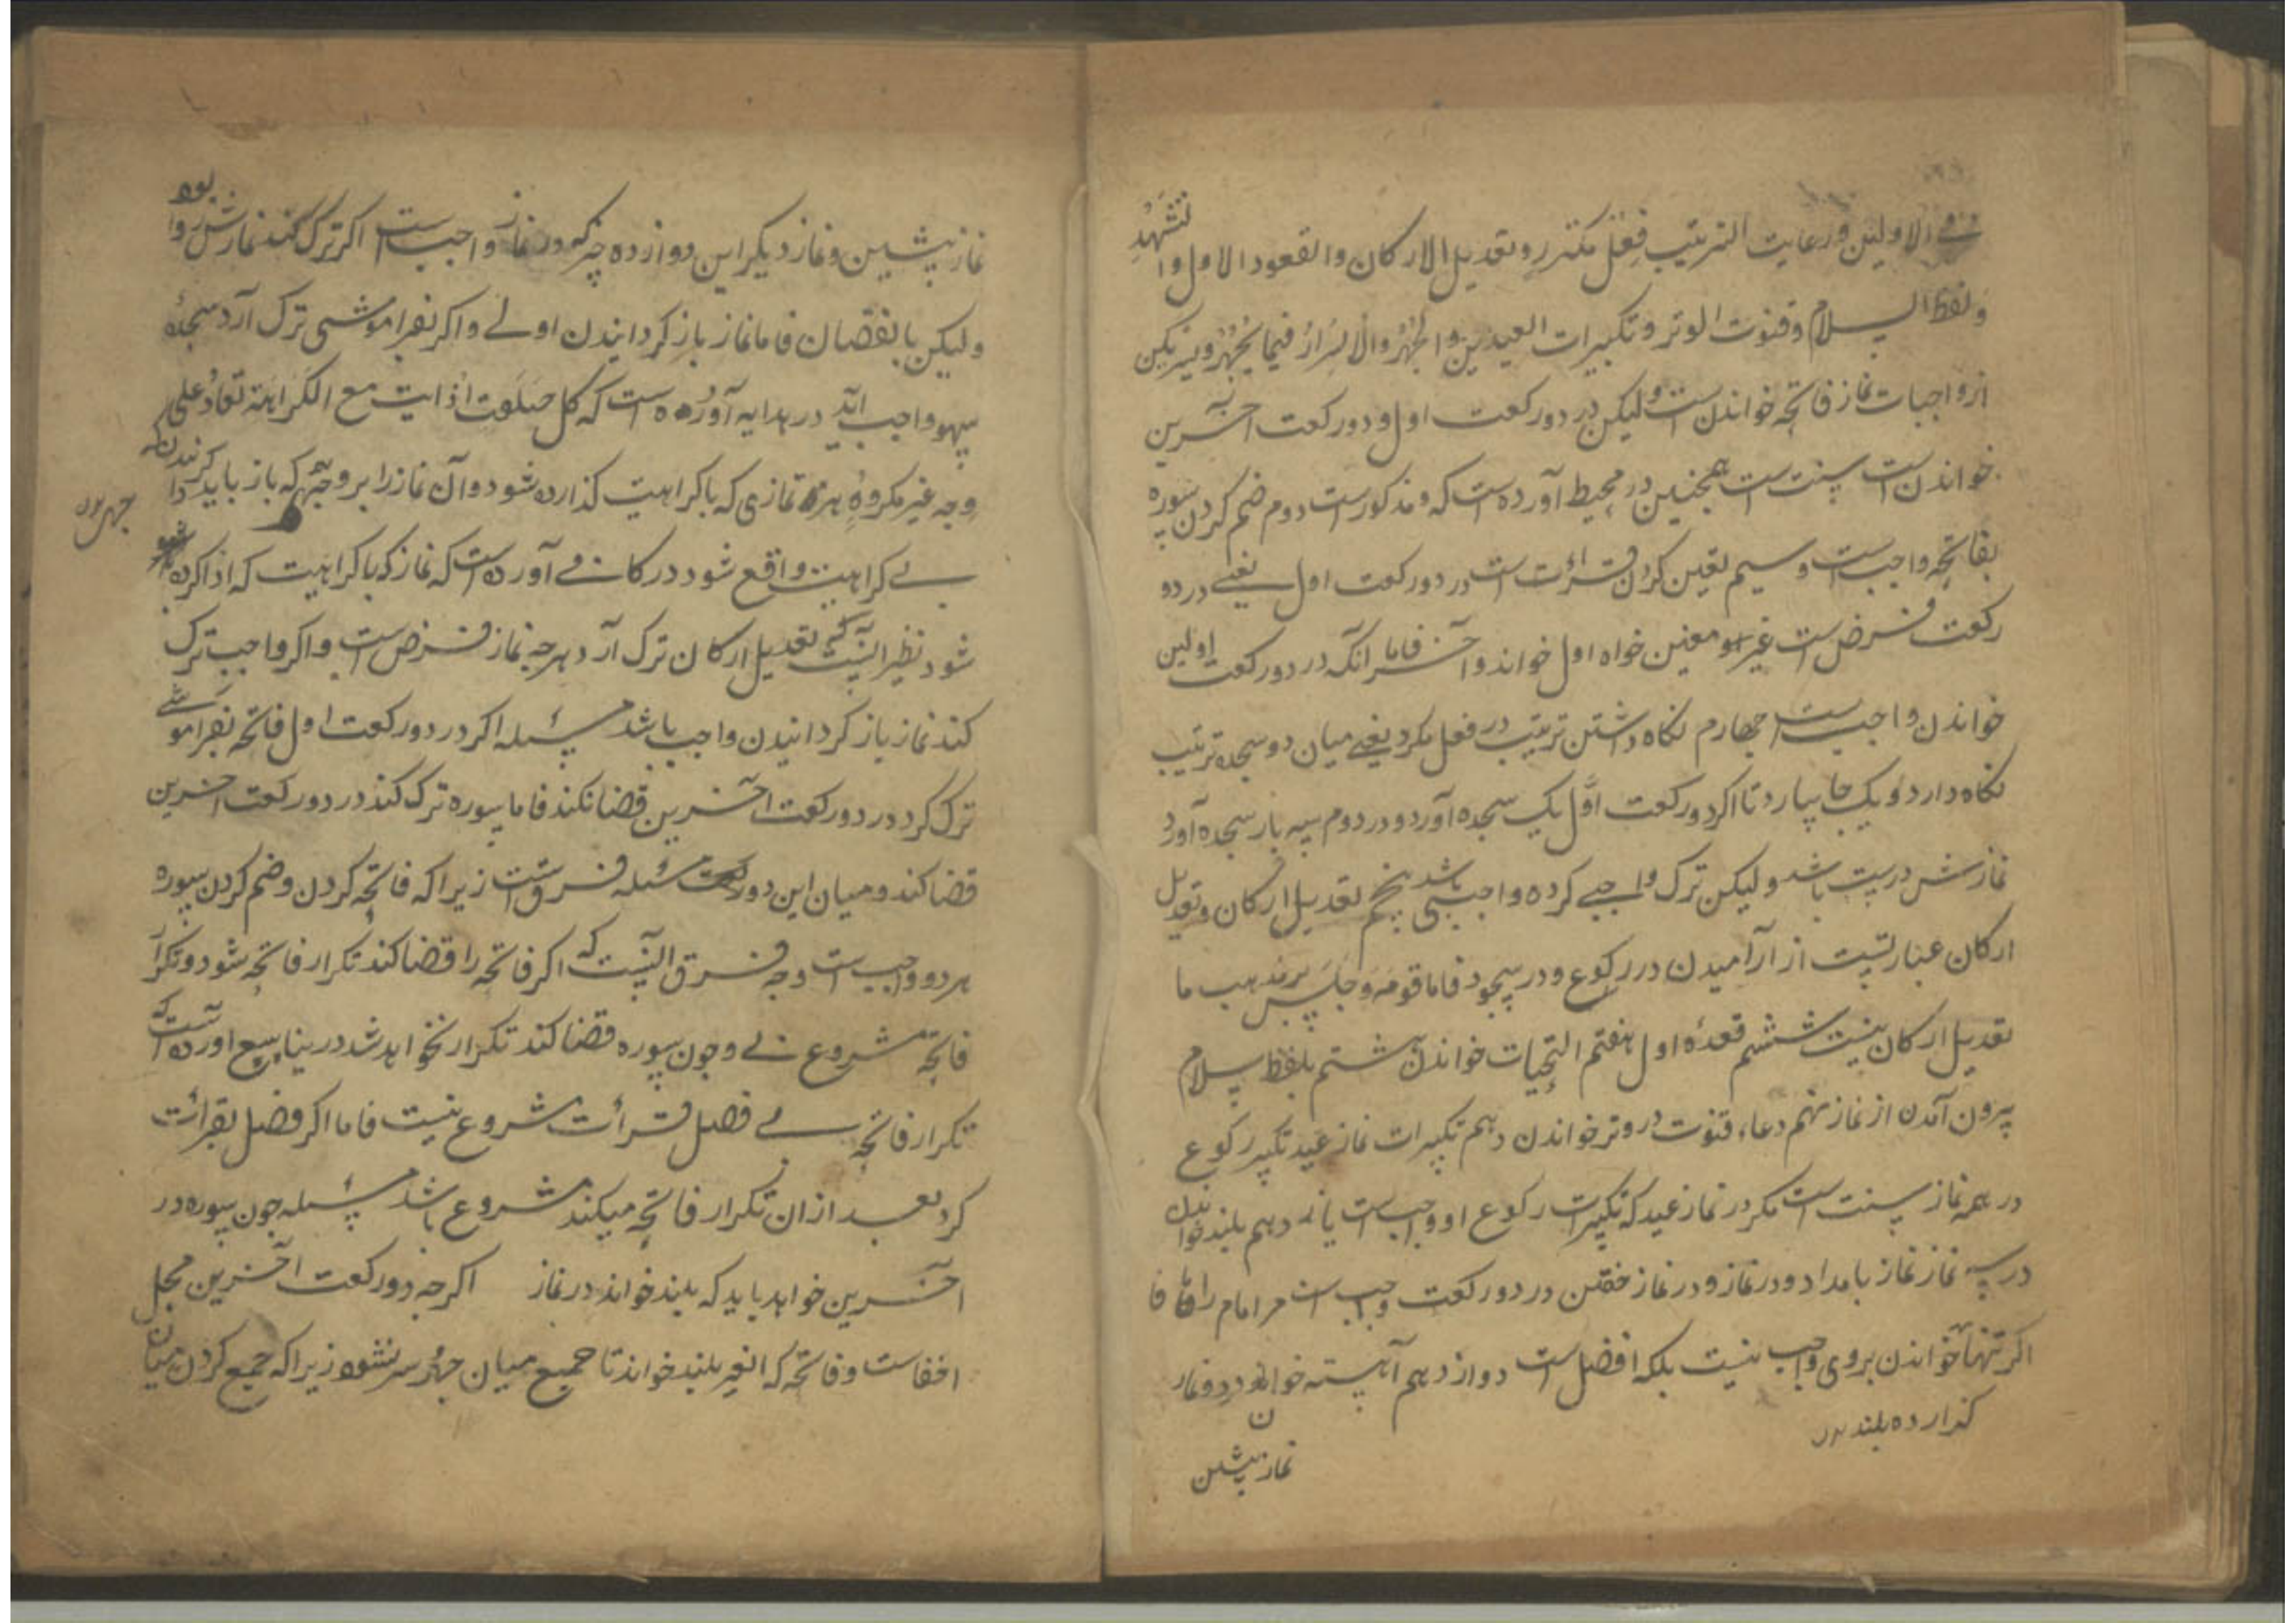 في الاولين ورعايت الترتيب فِعْل مکتررو تعديل الارکان والقعود الاول والتشهد
ولفظ السلام وقنوت الوتر وتکبیرات العیدین والجهرُ والاسرارُ فیما یُجهر ویسر یکن
از واجبات نماز فاتحه خواندن است ولیکن در دو رکعت اول و دو رکعت آخرین
خواندن است سنت است همچنین در محیط آورده است که مذکور است دوم ضم کردن سوره
بفاتحه واجب است و سیم تعین کردن قرائت است در دو رکعت اول یعنی در دو
رکعت فرض است غیر معین خواه اول خواند و آخر فاما آنکه در دو رکعت اولین
خواندن واجبست چهارم نگاه داشتن ترتیب در فعل مکرر یعنی میان دو سجده ترتیب
نگاه دارد و یکجا بیارد تا اگر در رکعت اوّل یک سجده آورد و در دوم سه بار سجده آورد
نمازش درست باشد ولیکن ترک واجبی کرده باشد پنجم تعدیل ارکان و تعدیل
ارکان عبارتست از آرامیدن در رکوع و در سجود فاما قومه و جلسه بر مذهب ما
تعدیل ارکان نیست ششم قعدهٔ اول هفتم التحیات خواندن هشتم بلفظ سلام
بیرون آمدن از نماز نهم دعاء قنوت در وتر خواندن دهم تکبیرات نماز عید تکبیر رکوع
در همه نماز سنت است مگر در نماز عید که تکبیرات رکوع او واجب است یازدهم بلند خواندن
در سه نماز نماز بامداد و در نماز و در نماز خفتن در دو رکعت واجب است مر امام را فاما
اگر تنها خواندن بروی واجب نیست بلکه افضل است دوازدهم آهسته خواندن در دو نماز
گذارده بلند
نماز پیشین
نماز پیشین و نماز دیگر این دوازده چیز که در نماز واجب است اگر ترک کند نمازش روا بود
ولیکن با نقصان فاما نماز باز گردانیدن اولی و اگر بفراموشی ترک آرد سجدهٔ
سهو واجب آید در هدایه آورده است که کل صلوت ادایت مع الکراهة تعاد علی
وجه غیر مکروه هر نمازی که باکراهیت گذارده شود و آن نماز را بر وجهی که باز باید گردانیدن که
جهر بود
بی کراهیت واقع شود در کافی آورده است که نماز که باکراهیت که اداکرده شود
شود نظیر اینست که تعدیل ارکان ترک آرد هرچه نماز فرض است و اگر واجب ترک
کند نماز باز گردانیدن واجب باشد مسئله اگر در دو رکعت اول فاتحه بفراموشی
ترک کرد در دو رکعت آخرین قضا نکند فاما سوره ترک کند در دو رکعت آخرین
قضا کند و میان این دو مسئله فرق است زیرا که فاتحه کردن و ضم کردن سوره
هر دو واجب است وجه فرق اینست که اگر فاتحه را قضا کند تکرار فاتحه شود و تکرار
فاتحه مشروع نی و چون سوره قضا کند تکرار نخواهد شد در ینابیع آورده است که
تکرار فاتحه بی فصل قرائت مشروع نیست فاما اگر فصل بقرائت
کرد بعد از ان تکرار فاتحه میکند مشروع باشد مسئله چون سوره در
آخرین خواهد باید که بلند خواند در نماز اگرچه دو رکعت آخرین محل
اخفاست و فاتحه که النعیر بلند خواند تا جمیع میان جهر و سر نشود زیرا که جمیع کردن میان